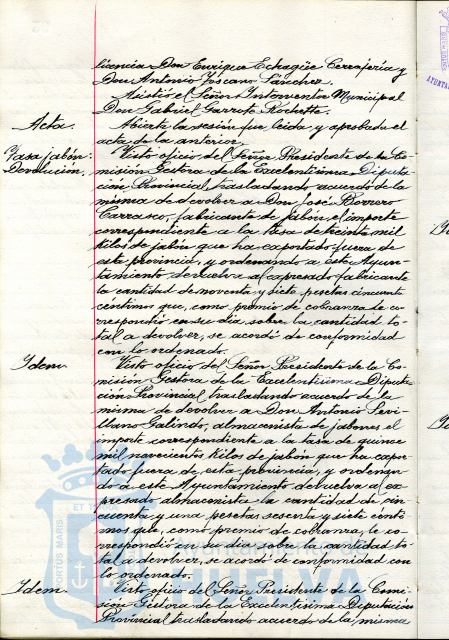 licencia Don Enrique Echagüe Cerrajería y
Don Antonio Toscano Sánchez.
Asistió el Señor Interventor Municipal
Don Gabriel Garrote
Acta.
Abierta la sesión fue leida y aprobada el
acta de la anterior.
Tasa jabón:
Devolución.
Visto oficio del Señor Presidente de la Co-
misión Gestora de la Excelentísima Diputa-
ción Provincial trasladando acuerdo de la
misma de devolver a Don José Borrero
Carrasco, fabricante de jabón, el importe
correspondiente a la tasa de treinta mil
kilos de jabón que ha exportado fuera de
esta provincia, y ordenando a este Ayun-
tamiento devuelva al expresado fabricante
la cantidad de noventa y siete pesetas cincuenta
céntimos que, como premio de cobranza le co-
rrespondió en su dia sobre la cantidad to-
tal a devolver, se acordó de conformidad
con lo ordenado.
Idem.
Visto oficio del Señor Presidente de la Co-
misión Gestora de la Excelentísima Diputa-
ción Provincial trasladando acuerdo de la
misma de devolver a Don Antonio Sevi-
llano Galindo, almacenista de jabones el
importe correspondiente a la tasa de quince
mil novecientos kilos de jabón que ha expor-
tado fuera de esta provincia, y ordenan-
do a este Ayuntamiento devuelva al ex-
presado almacenista la cantidad de cin-
cuenta y una pesetas sesenta y siete cénti-
mos que, como premio de cobranza, le co-
rrespondió en su dia sobre la cantidad to-
tal a devolver, se acordo de conformidad con
lo ordenado.
Idem.
Visto oficio del Señor Presidente de la Comi-
sión Gestora de la Excelentísima Diputación
Provincial trasladando acuerdo de la misma
PORTUS MARIS
ET
Ayuntamiento de
HUELVA